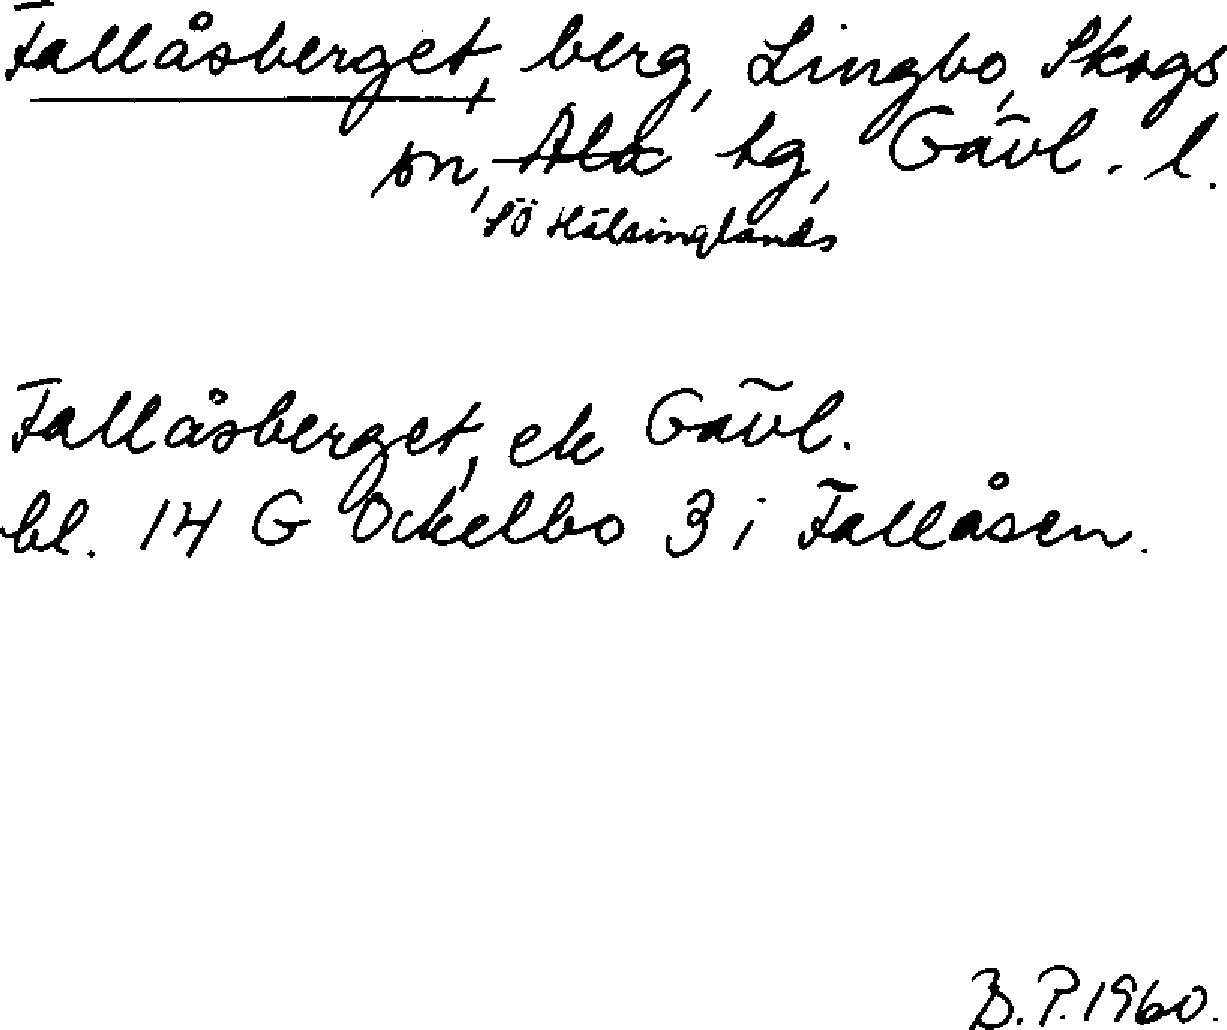 Fallåsberget, berg, Lingbo, Skogs
sn, Ala tg, Gävl. l.
SÖ Hälsinglands
Fallåsberget, ek Gävl.
bl. 14 G Ockelbo 3 i Fallåsen.
B. P. 1960.